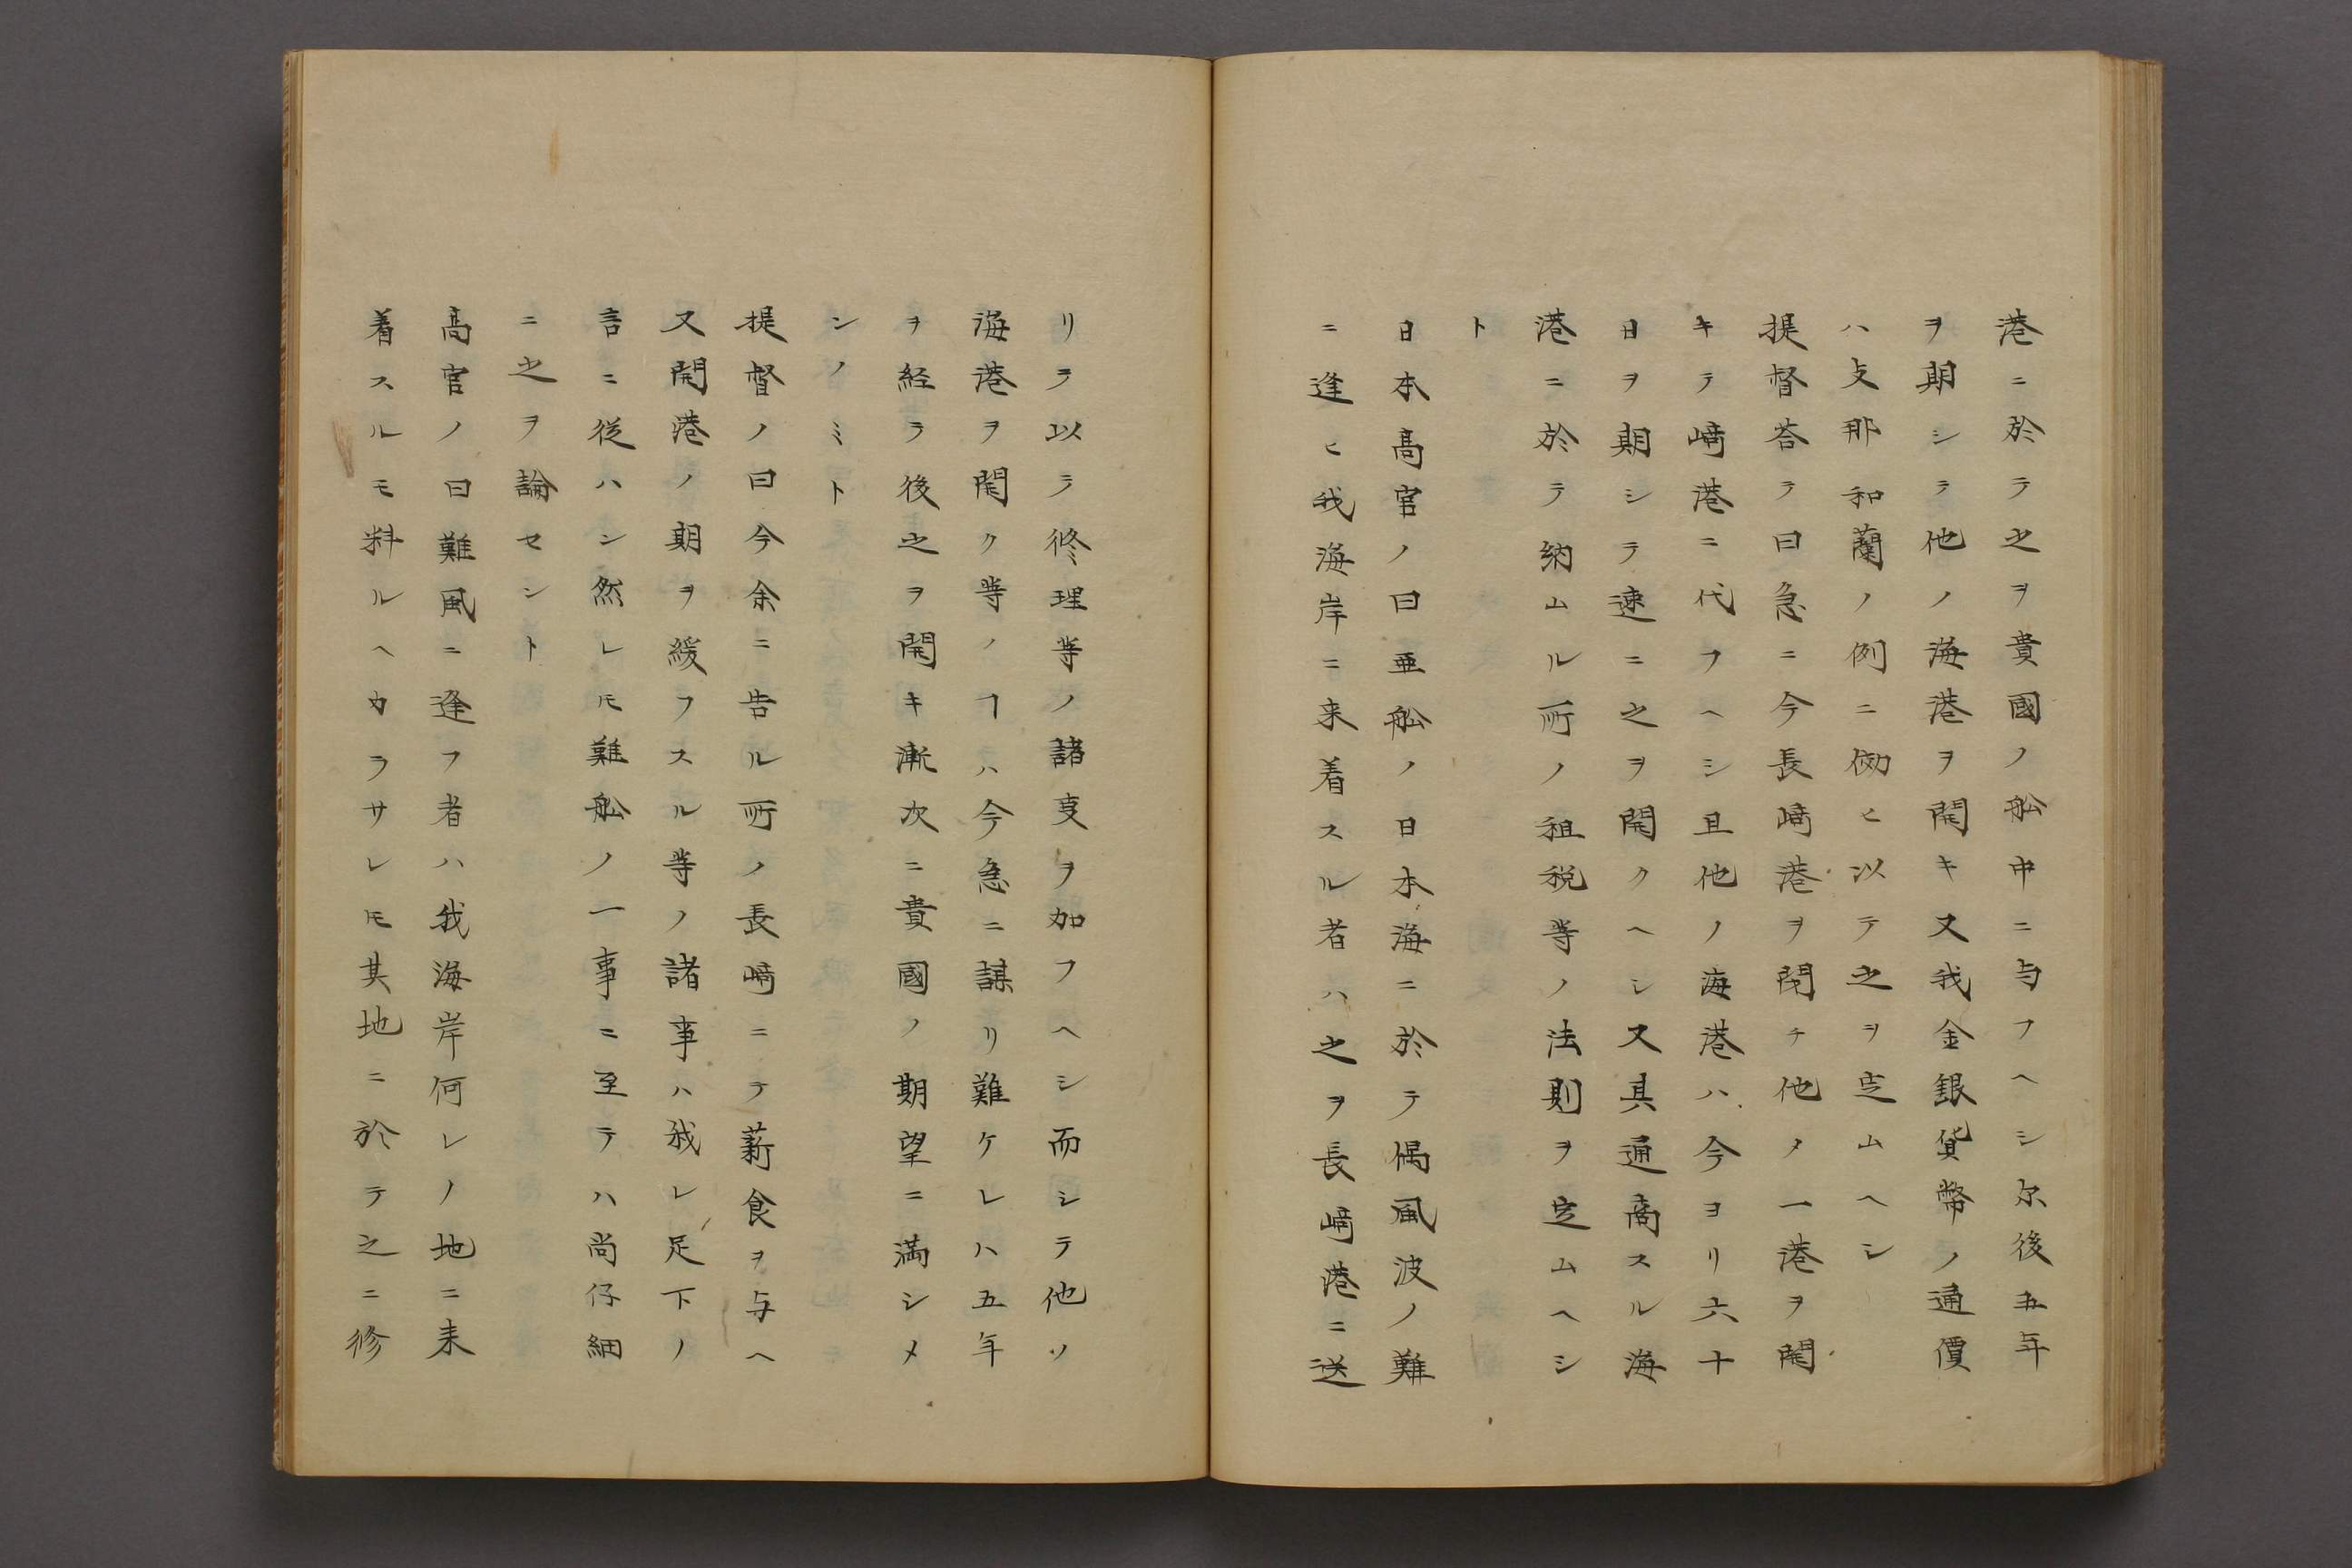 港ニ於テ之ヲ貴國ノ舩中ニ与フヘシ尓後五年
ヲ期シテ他ノ海港ヲ開キ又我金銀貨幣ノ通價
ハ支那和蘭ノ例ニ倣ヒ以テ之ヲ定ムヘシ
提督答テ曰急ニ今長﨑港ヲ閉チ他タ一港ヲ開
キテ﨑港ニ代フヘシ且他ノ海港ハ今ヨリ六十
日ヲ期シテ速ニ之ヲ開クヘシ又其通商スル海
港ニ於テ納ムル所ノ租税等ノ法則ヲ定ムヘシ
ト
日本高官ノ曰亜舩ノ日本海ニ於テ偶風波ノ難
ニ逢ヒ我海岸ニ来着スル者ハ之ヲ長﨑港ニ送
リテ以テ修理等ノ諸叓ヲ加フヘシ而シテ他ソ
海港ヲ開ク等ノヿハ今急ニ謀リ難ケレハ五年
ヲ経テ後之ヲ開キ漸次ニ貴國ノ期望ニ満シメ
ンノミト
提督ノ曰今余ニ告ル所ノ長﨑ニテ薪食ヲ与ヘ
又開港ノ期ヲ緩フスル等ノ諸事ハ我レ足下ノ
言ニ従ハン然レモ難舩ノ一事ニ至テハ尚仔細
ニ之ヲ論セント
高官ノ曰難風ニ逢フ者ハ我海岸何レノ地ニ来
着スルモ料ルヘカラサレモ其地ニ於テ之ニ修